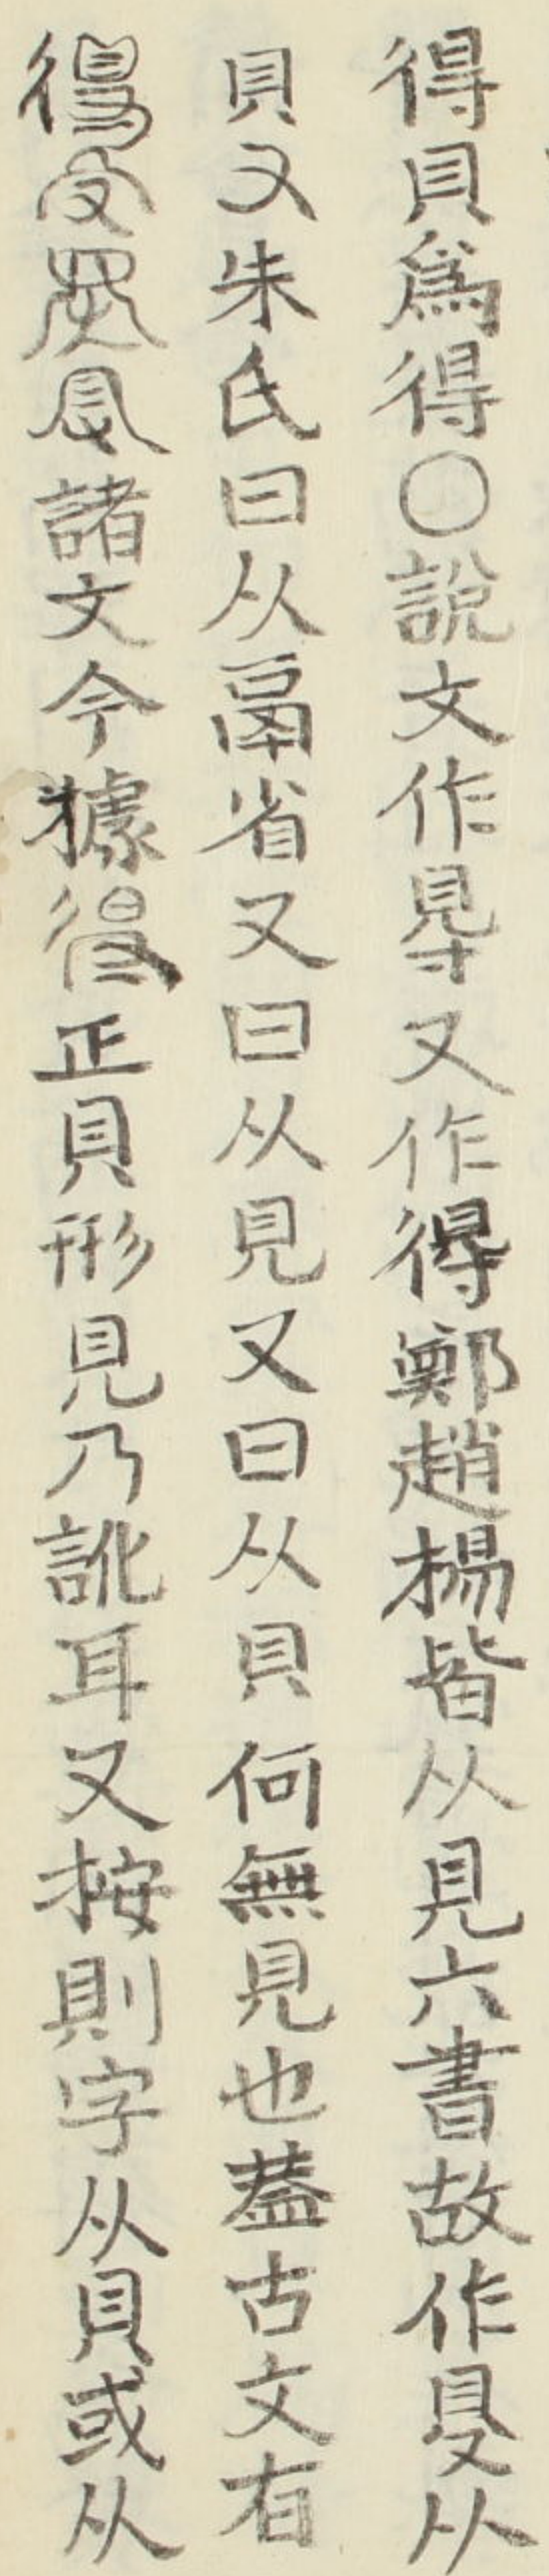 得貝爲得○說文作㝵又作得鄭趙楊皆从見六書故作𧴫从
貝又朱氏曰从鬲省又曰从見又曰从貝何無見也葢古文有
諸文今據正貝形見乃訛耳又按則字从貝或从